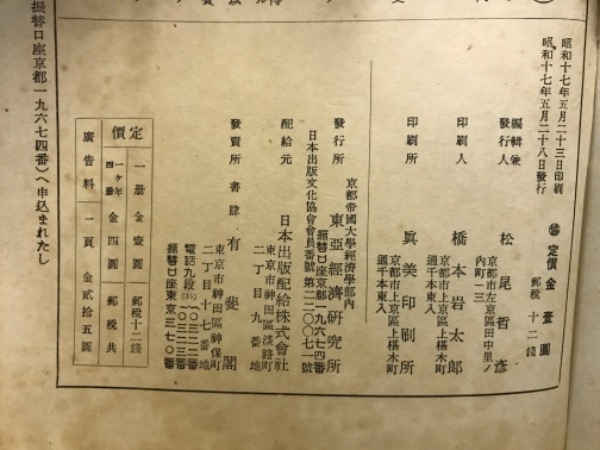 昭和十七年五月二十三日印刷
昭和十七年五月二十八日發行
定價金壹圓
郵税十二錢
編輯兼
發行人
松尾哲彦
京都市左京區田中里ノ
内町一三
印刷人
橋本岩太郎
京都市上京區上椹木町
通千本東入
印刷所
眞美印刷所
京都市上京區上椹木町
通千本東入
發行所
京都帝國大學經濟學部内
東亞經濟研究所
振替口座京都一九六七四番
日本出版文化協會會員番號第二二〇〇七一號
配給元
日本出版配給株式會社
東京市神田區淡路町
二丁目九番地
發賣所
書肆
有斐閣
東京市神田區神保町
二丁目十七番地
電話九段
振替口座東京三七〇番
定價
一册金壹圓
郵税十二錢
一ケ年
四册
金四圓
郵税共
廣告料
一頁
金貳拾五圓
振替口座京都一九六七四番)へ申込まれたし